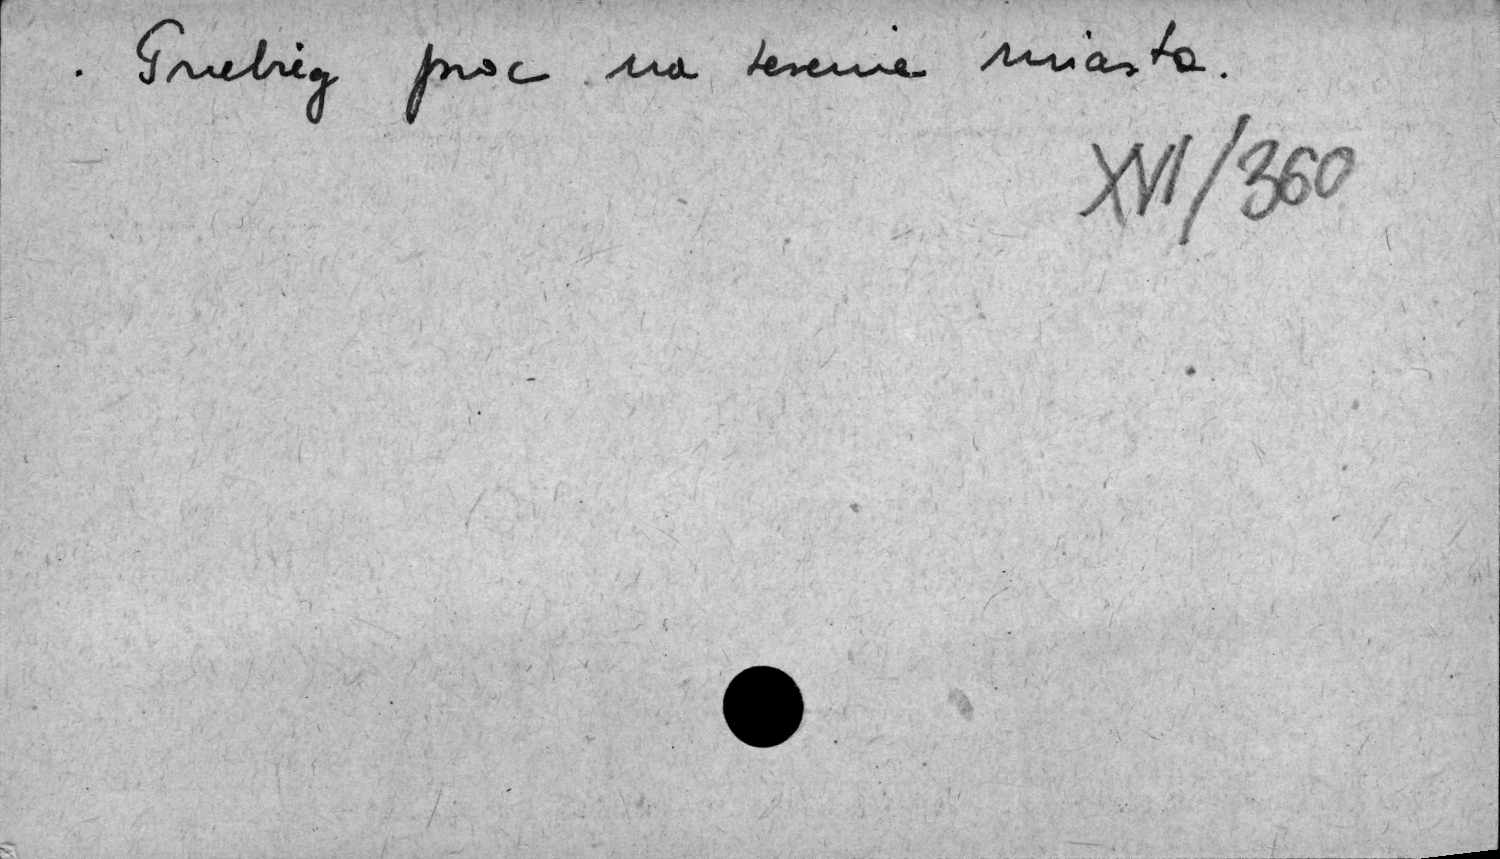 Przebieg prac na terenie miasta.
XVI/360